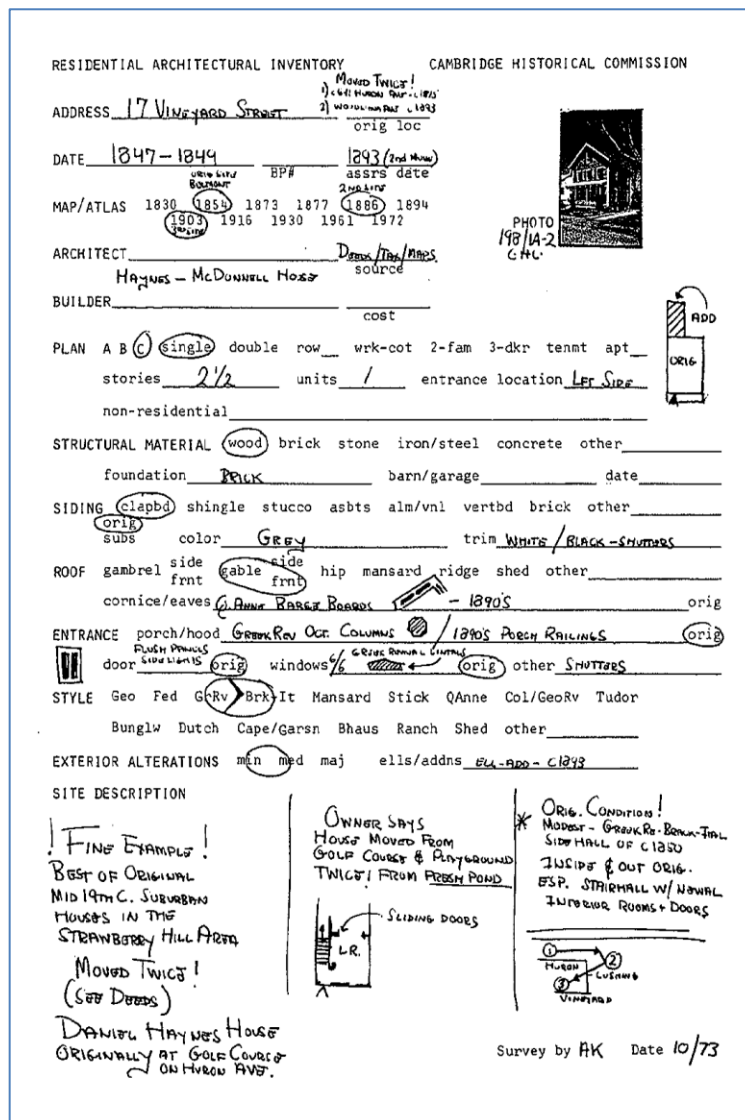 RESIDENTIAL ARCHITECTURAL INVENTORY CAMBRIDGE HISTORICAL COMMISSION
MOVED TWICE!
1) HURON AVE
2) C 1893
ADDRESS 17 VINEYARD STREET orig loc
DATE 1847-1849 BP# 1893 (2nd MOVE) assrs date
ORIG SITE BELMONT 2ND SITE
MAP/ATLAS 1830 1854 1873 1877 1886 1894
1903 1916 1930 1961 1972
3RD SITE
PHOTO
198/1A-2
C.H.C.
ARCHITECT DEEDS/TAX/MAPS
source
HAYNES - McDONNELL
BUILDER
cost
ADD
ORIG
PLAN A B C single double row wrk-cot 2-fam 3-dkr tenmt apt
stories 2 1/2 units 1 entrance location LEFT SIDE
non-residential
STRUCTURAL MATERIAL wood brick stone iron/steel concrete other
foundation BRICK barn/garage date
SIDING clapbd shingle stucco asbts alm/vnl vertbd brick other
orig
subs color GREY trim WHITE/BLACK-SHUTTERS
ROOF gambrel side frnt gable side frnt hip mansard ridge shed other
cornice/eaves Q. ANNE BARGE BOARDS - 1890'S orig
ENTRANCE porch/hood GREEK REV OCT. COLUMNS / 1890'S PORCH RAILINGS orig
FLUSH PANELS GREEK REVIVAL LINTELS
door SIDELIGHTS orig windows 6/6 orig other SHUTTERS
STYLE Geo Fed GrRv Brk-It Mansard Stick QAnne Col/GeoRv Tudor
Bunglw Dutch Cape/Garsn Bhaus Ranch Shed other
EXTERIOR ALTERATIONS min med maj ells/addns ELL-ADD - C1893
SITE DESCRIPTION
! FINE EXAMPLE !
BEST OF ORIGINAL
MID 19TH C. SUBURBAN
HOUSES IN THE
STRAWBERRY HILL AREA
MOVED TWICE!
(SEE DEEDS)
DANIEL HAYNES HOUSE
ORIGINALLY AT GOLF COURSE
ON HURON AVE.
OWNER SAYS
HOUSE MOVED FROM
GOLF COURSE & PLAYGROUND
TWICE! FROM FRESH POND
SLIDING DOORS
L.R.
* ORIG. CONDITION!
MODEST - GREEK RE.-BRACK-ITAL
SIDE HALL OF C1850
INSIDE & OUT ORIG.
ESP. STAIRHALL W/ NEWAL
INTERIOR ROOMS + DOORS
1
HURON 2
CUSHING
3
VINEYARD
Survey by AK Date 10/73